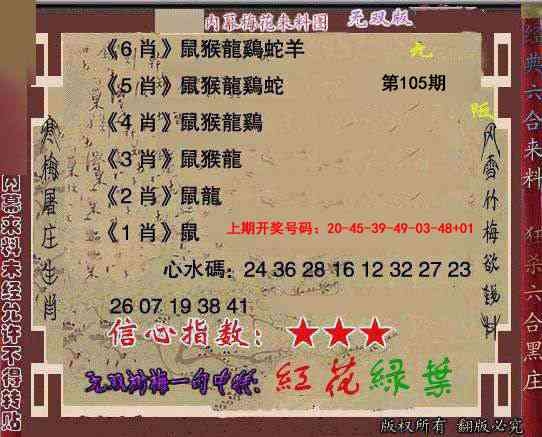 内幕梅花来料图 无双版
《6 肖》鼠猴龍鷄蛇羊
《5 肖》鼠猴龍鷄蛇
第105期
《4 肖》鼠猴龍鷄
《3 肖》鼠猴龍
《2 肖》鼠龍
《1 肖》鼠
上期开奖号码：20-45-39-49-03-48+01
心水碼：24 36 28 16 12 32 27 23
26 07 19 38 41
信心指数：★★★
无双梅一句中特：紅花綠葉
版权所有 翻版必究
寒梅屠庄生肖
风雪竹梅欲
经典六合来料 狂杀六合黑庄
内幕来料未经允许不得转贴